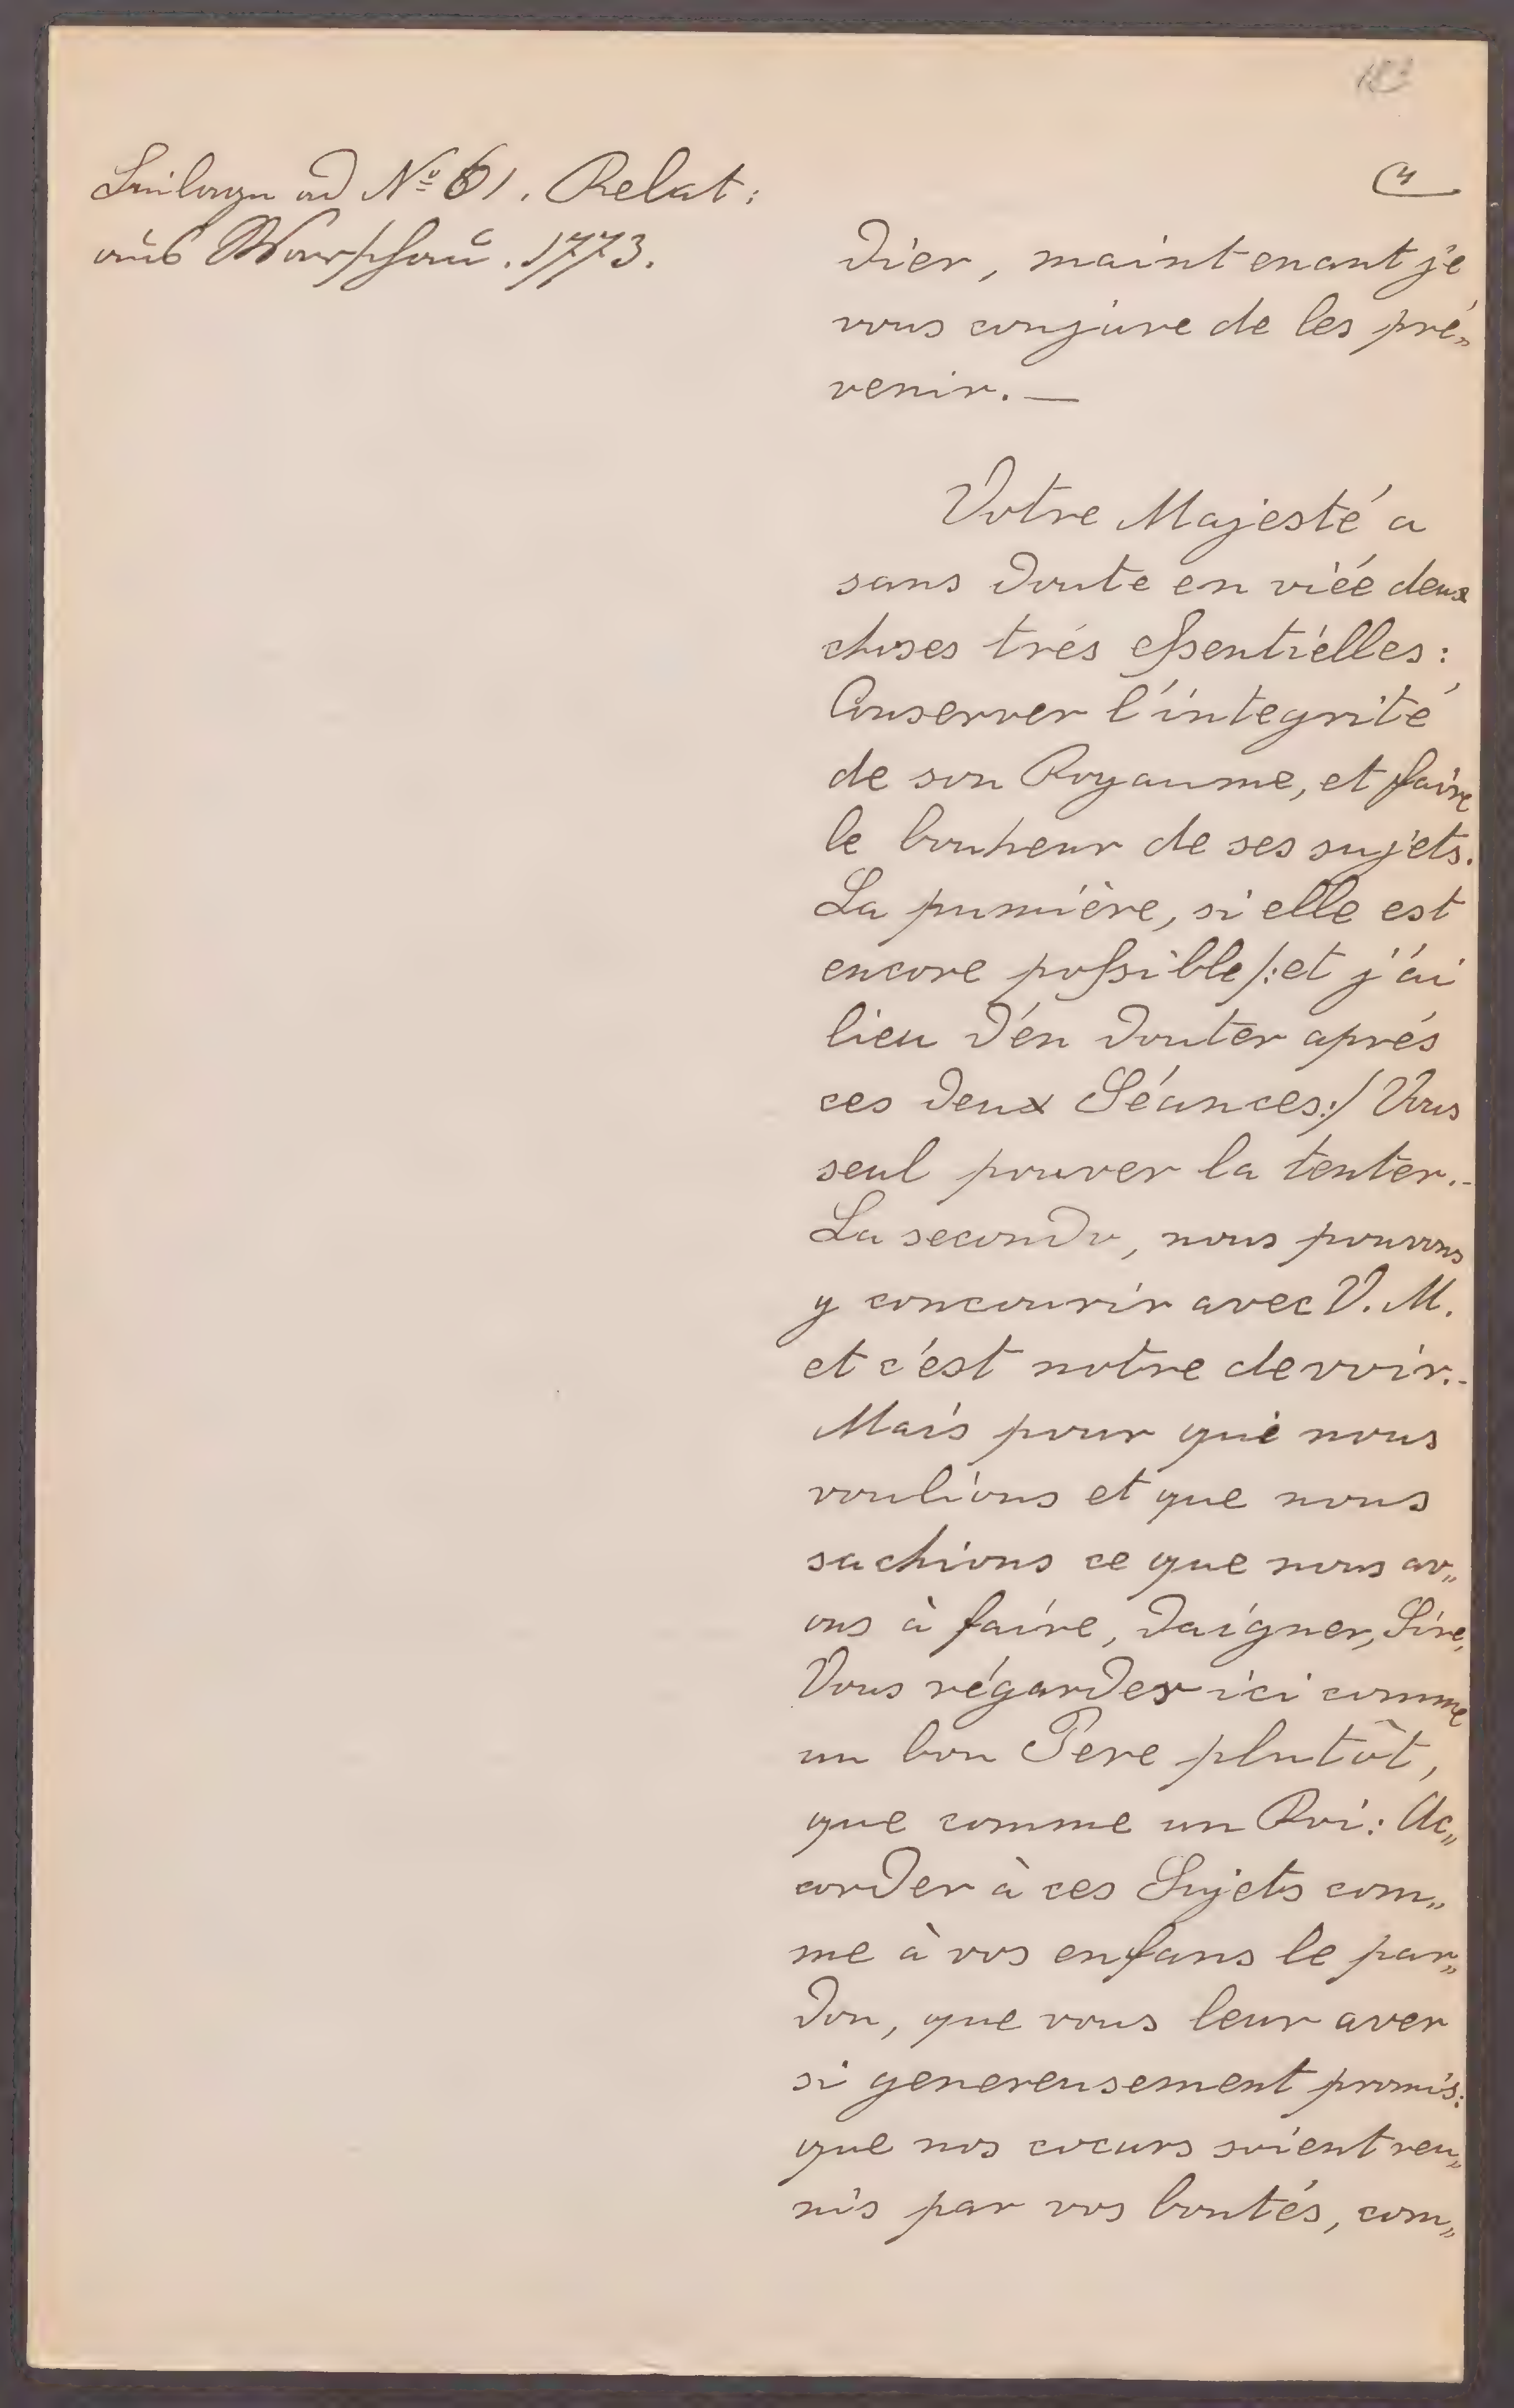 183
Beilage ad Nº 61. Relat:
aus Warschau. 1773.
4
dier, maintenant je
vous conjure de les pré„
venir. —
Votre Majesté a
sans doute en viëe deux
choses trés essentielles:
Conserver l'integrité
de son Royaume, et faire
le bonheur de ses sujets.
La pumière, si elle est
encore possible /: et j'ai
lieu d'en douter aprés
ces deux Séances :/ Vous
seul pouver la tenter.-
La seconde, nous pouvons
y concourir avec V. M.
et c'est notre devoir.-
Mais pour que nous
voulions et que nous
sachions ce que nous av„
ons à faire, daigner, Sire,
Vous régarder ici comme
un bon Pere plutôt,
que comme un Roi: Ac„
corder à ces Sujets com„
me à vos enfans le par„
don, que vous leur aver
si genereusement promis:
que nos coeurs soient reu„
nis par vos bontés, com„